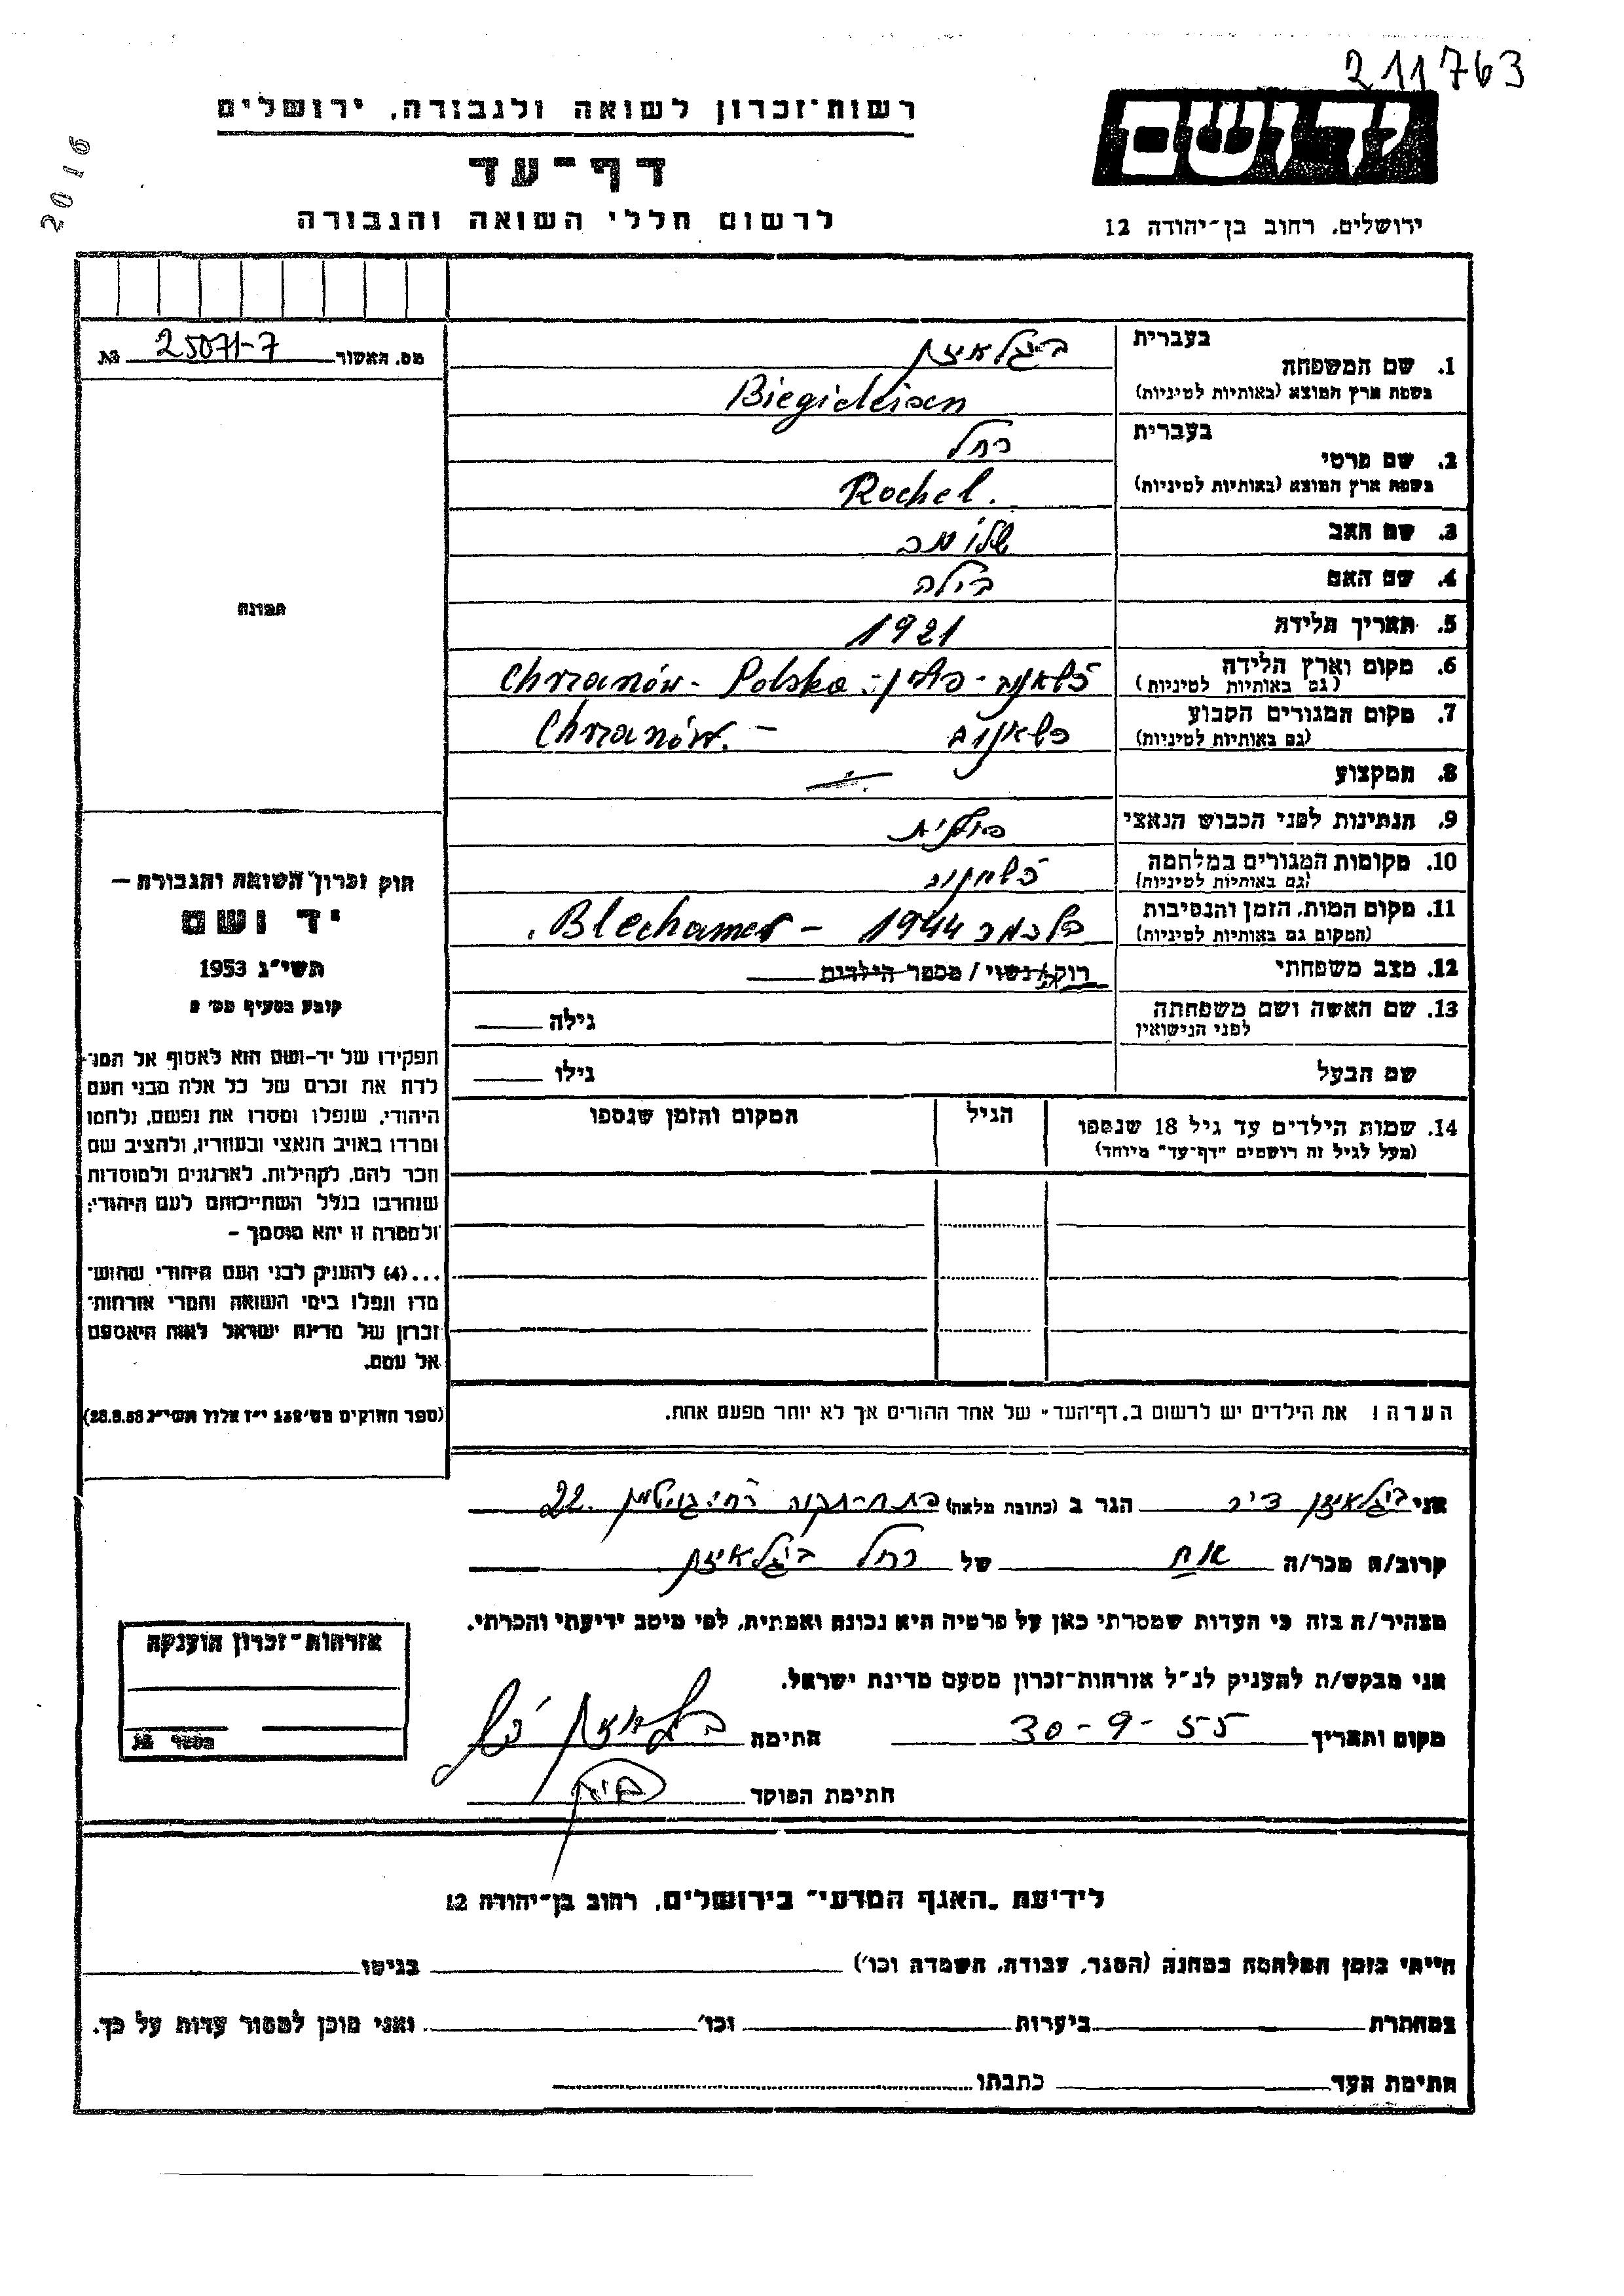 211763
2016
רשות־זכרון לשואה ולגבורה, ירושלים
יד ושם
דף־עד
לרשום חללי השואה והגבורה
ירושלים, רחוב בן־יהודה 12
מס. האשור 25071-7 №
1. שם המשפחה
בעברית
ביגלאיזן
בשפת ארץ המוצא (באותיות לטיניות)
Biegieleisen
2. שם פרטי
בעברית
רחל
בשפת ארץ המוצא (באותיות לטיניות)
Rochel.
3. שם האב
4. שם האם
בילה
5. תאריך הלידה 1921
6. מקום וארץ הלידה
(גם באותיות לטיניות)
Chrzanów - Polska
7. מקום המגורים הקבוע
(גם באותיות לטיניות)
Chrzanów. -
8. המקצוע
9. הנתינות לפני הכבוש הנאצי
פולנית
10. מקומות המגורים במלחמה
(גם באותיות לטיניות)
11. מקום המות, הזמן והנסיבות
(המקום גם באותיות לטיניות)
1944 - Blechamer
12. מצב משפחתי רוק/נשוי / מספר הילדים
13. שם האשה ושם משפחתה
לפני הנישואין
גילה
שם הבעל
גילו
14. שמות הילדים עד גיל 18 שנספו
(מעל לגיל זה רושמים "דף־עד" מיוחד)
הגיל
המקום והזמן שנספו
הערה! את הילדים יש לרשום ב"דף־העד" של אחד ההורים אך לא יותר מפעם אחת.
תמונה
חוק זכרון השואה והגבורה —
יד ושם
תשי"ג 1953
קובע בסעיף מס' 2
תפקידו של יד-ושם הוא לאסוף אל המו־
לדת את זכרם של כל אלה מבני העם
היהודי, שנפלו ומסרו את נפשם, נלחמו
ומרדו באויב הנאצי ובעוזריו, ולהציב שם
וזכר להם, לקהילות, לארגונים ולמוסדות
שנחרבו בגלל השתייכותם לעם היהודי;
ולמטרה זו יהא מוסמך –
...(4) להעניק לבני העם היהודי שהוש־
מדו ונפלו בימי השואה והמרי אזרחות־
זכרון של מדינת ישראל לאות היאספם
אל עמם.
(ספר החוקים מס' 132 י"ז אלול תשי"ג 28.8.53)
אני ביגלאיזן הגר ב (כתובת מלאה) פתח-תקוה 22
קרוב/ה מכר/ה אח של רחל ביגלאיזן
מצהיר/ה בזה כי העדות שמסרתי כאן על פרטיה היא נכונה ואמתית, לפי מיטב ידיעתי והכרתי.
אני מבקש/ת להעניק לנ"ל אזרחות־זכרון מטעם מדינת ישראל.
מקום ותאריך 30-9-55 חתימה
חתימת הפוקד
אזרחות־זכרון הוענקה
מספר №
לידיעת "האגף המדעי" בירושלים, רחוב בן־יהודה 12
הייתי בזמן המלחמה במחנה (הסגר, עבודה, השמדה וכו') בגיטו
במחתרת ביערות וכו' ואני מוכן למסור עדות על כך.
חתימת העד כתבתו